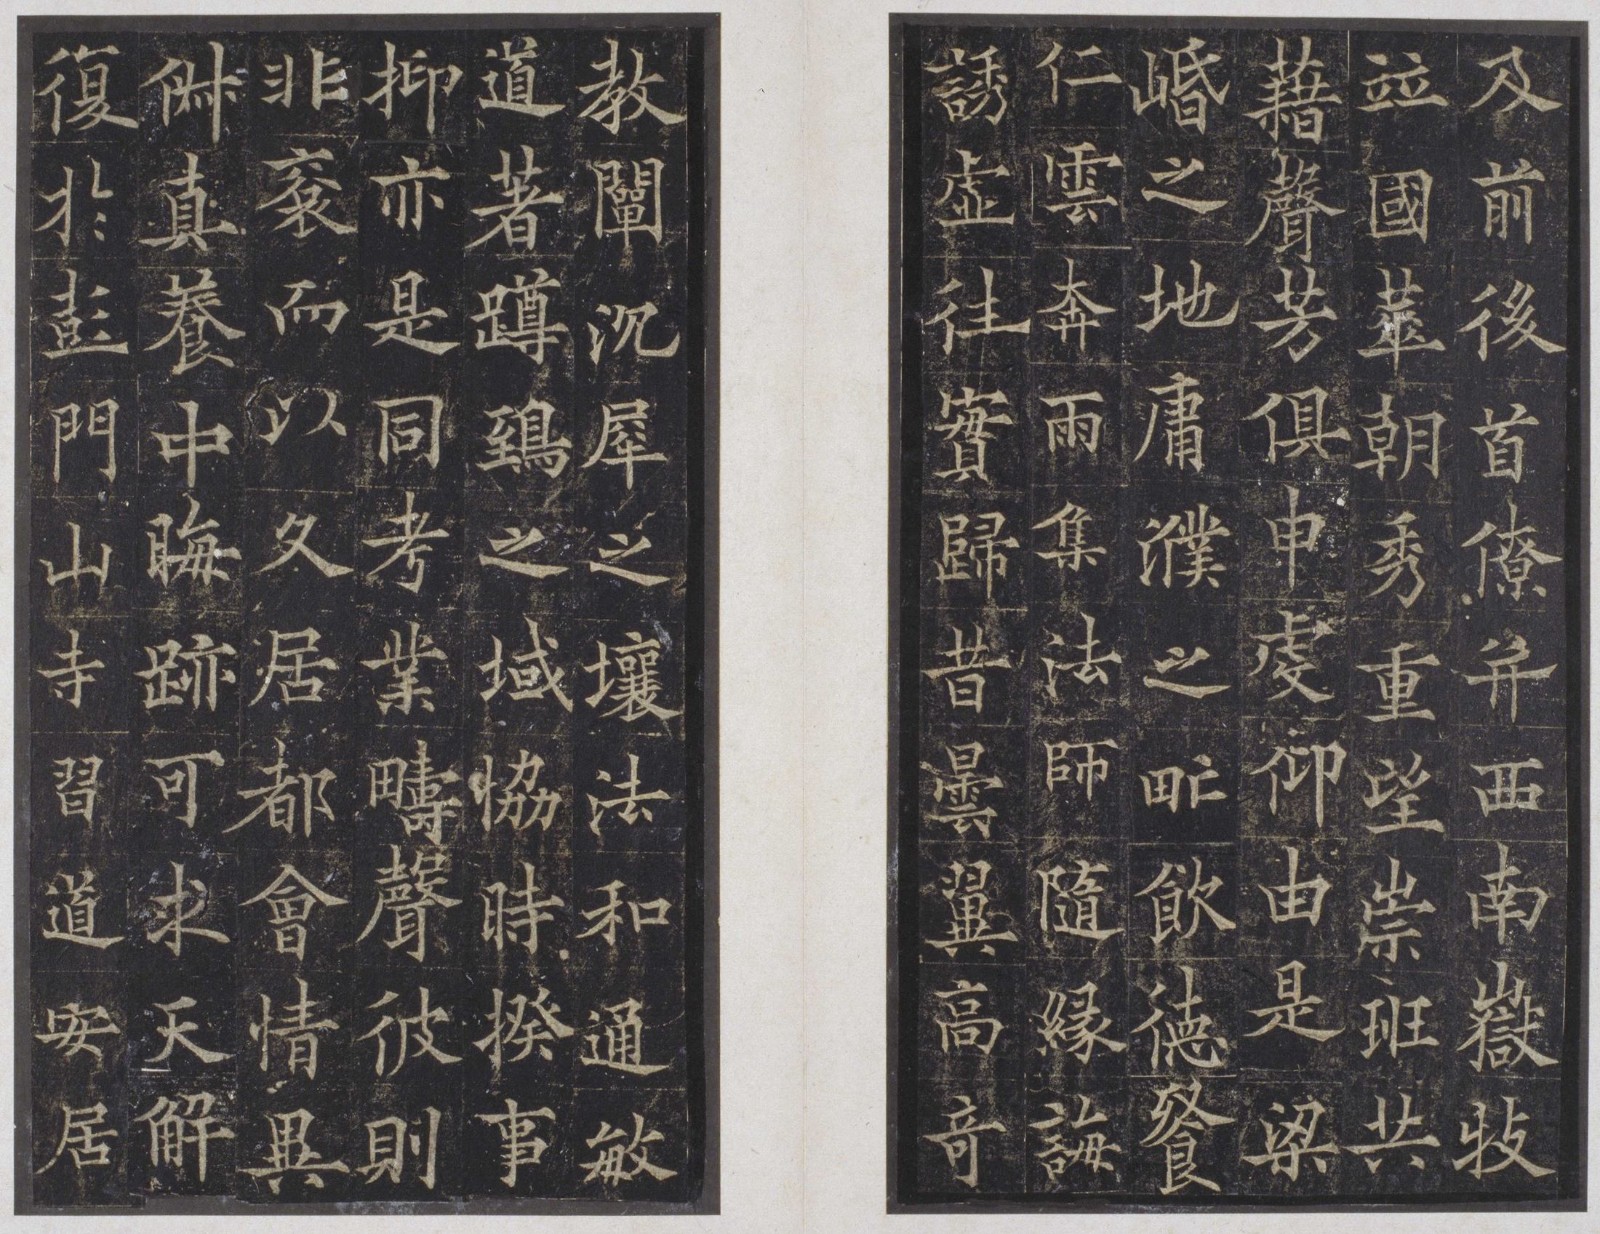 及前後首僚并西南嶽牧
竝國華朝秀重望崇班共
藉聲芳俱申虔仰由是梁
㟭之地庸濮之甿飲德餐
仁雲奔雨集法師隨緣誨
誘虛往實歸昔曇翼高奇
教闡沉犀之壤法和通敏
道著蹲鵄之域協時揆事
抑亦是同考業疇聲彼則
非衮而以久居都會情異
㑞真養中晦跡可求天解
復於彭門山寺習道安居